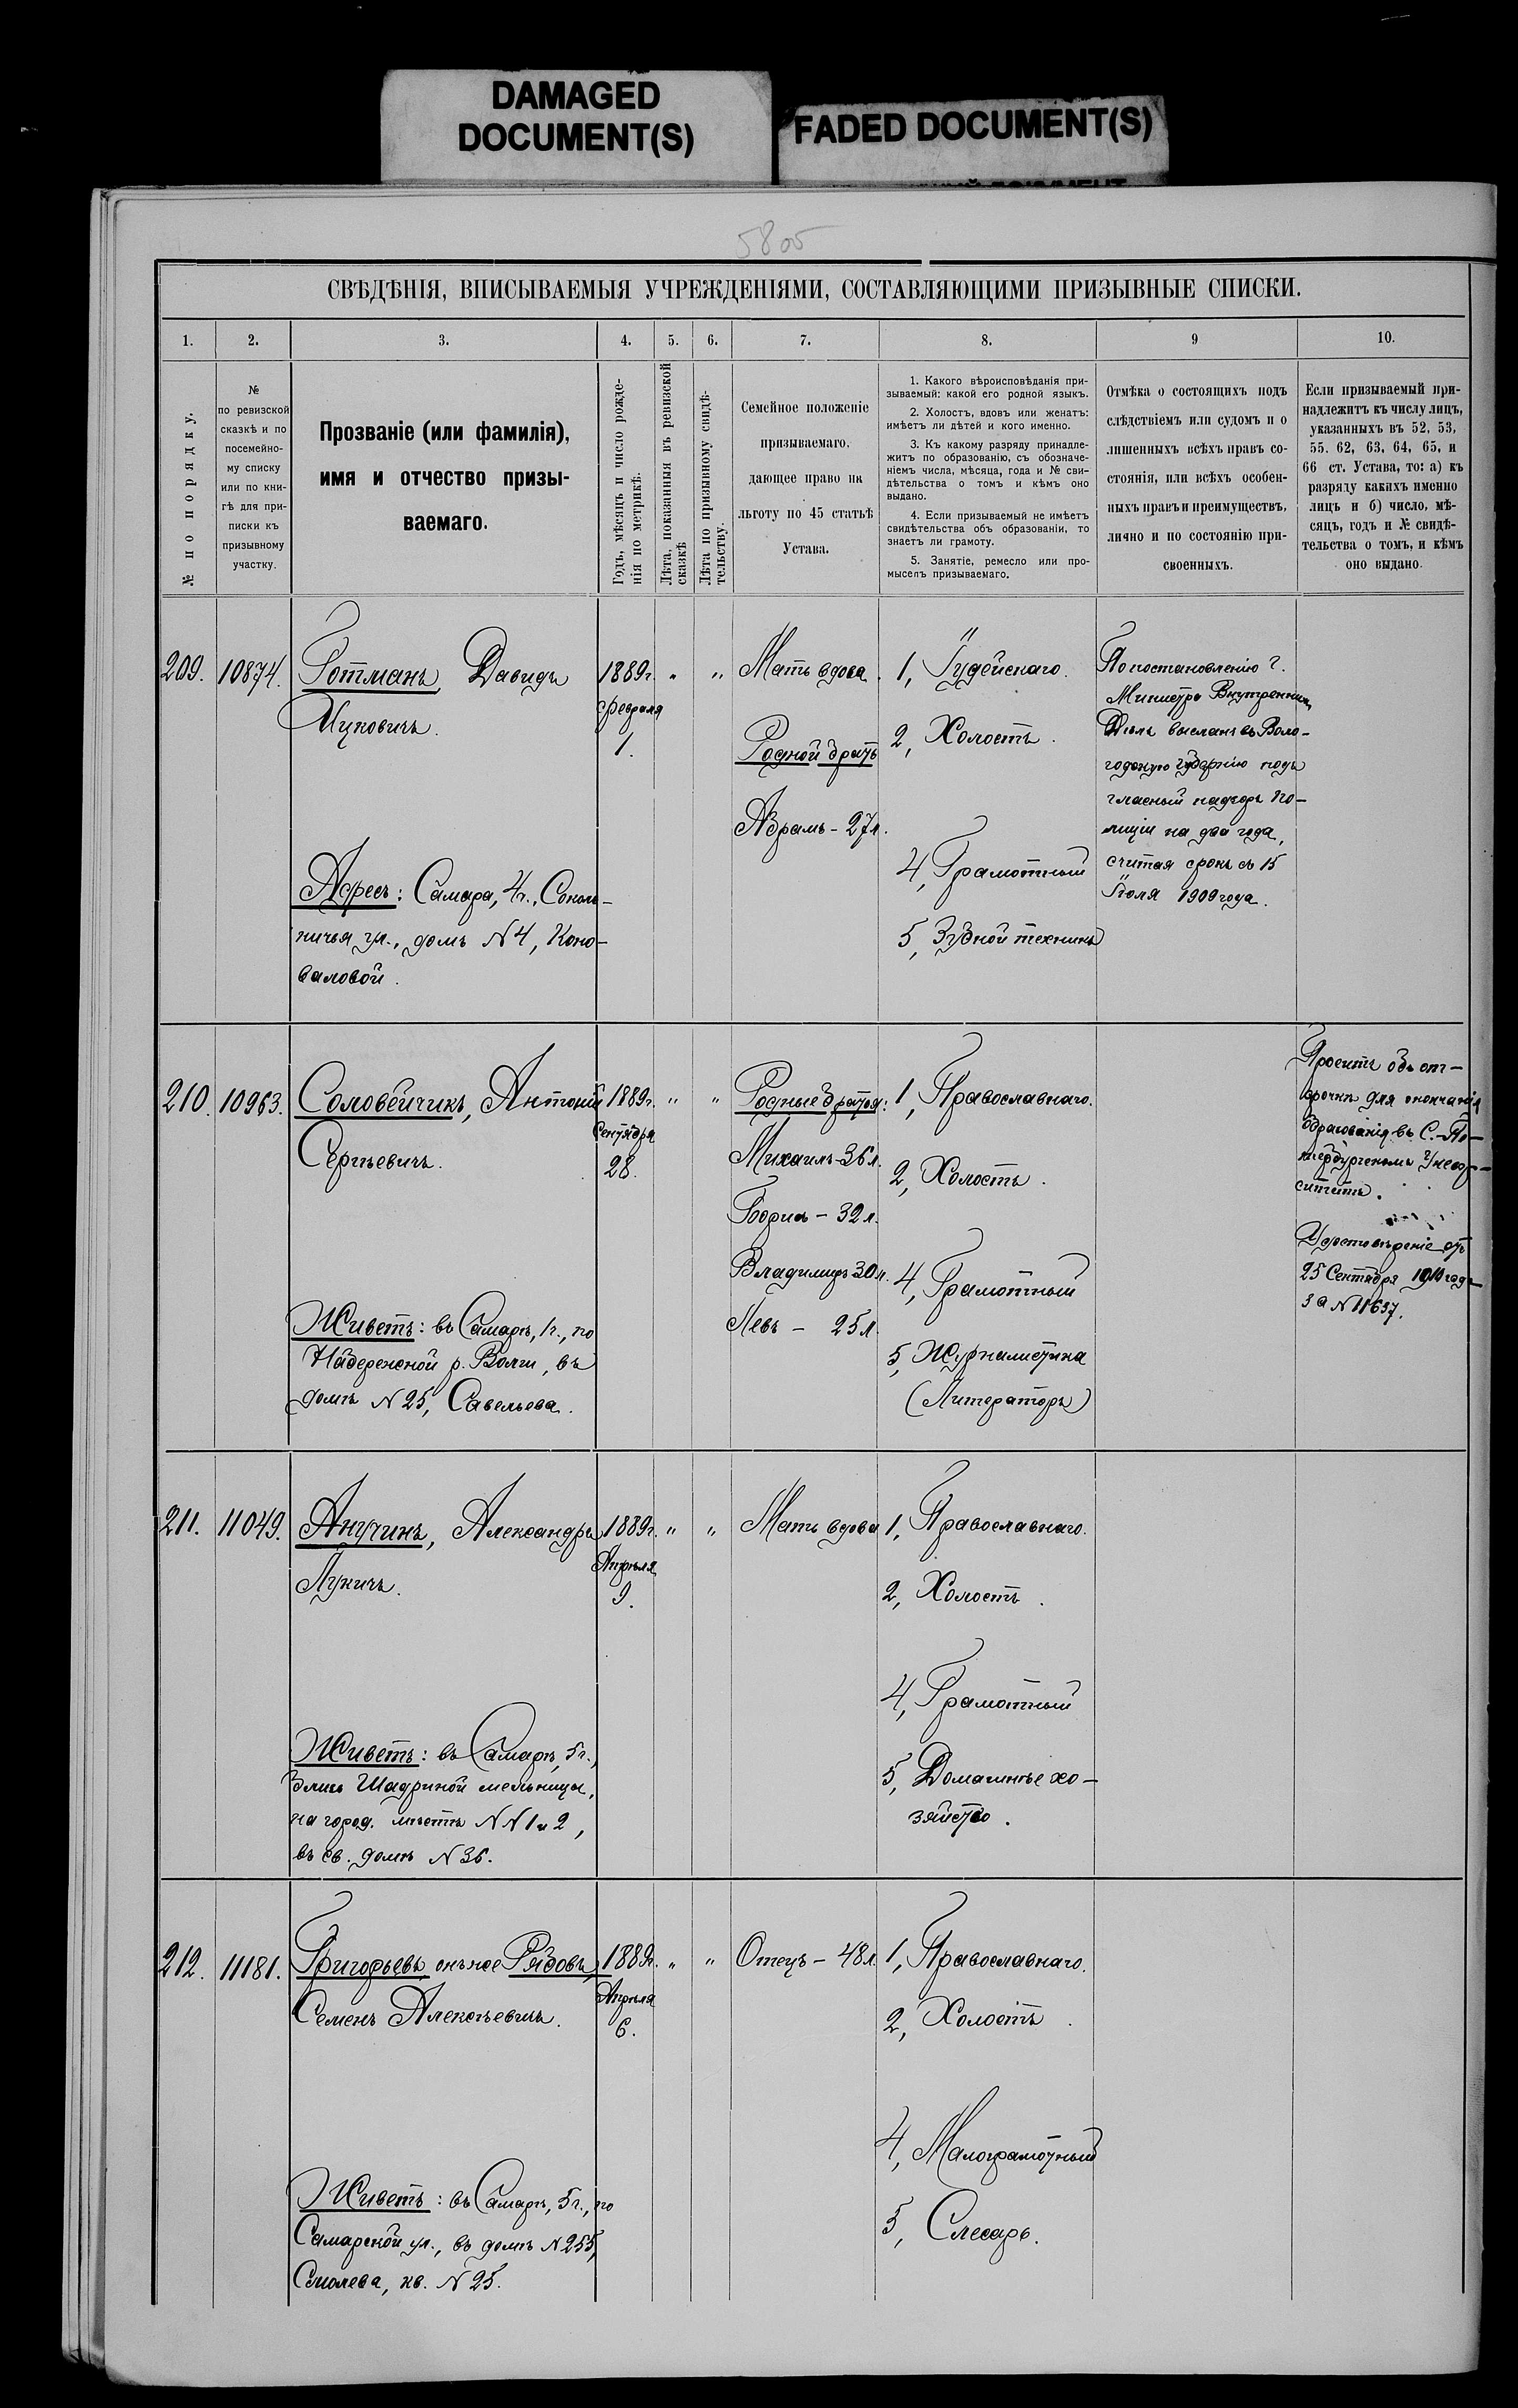 DAMAGED
DOCUMENT(S)
FADED DOCUMENT(S)
5805
СВѢДѢНІЯ, ВПИСЫВАЕМЫЯ УЧРЕЖДЕНІЯМИ, СОСТАВЛЯЮЩИМИ ПРИЗЫВНЫЕ СПИСКИ.
1.
2.
3.
4.
5.
6.
7.
8.
9
10.
№ по порядку.
№
по ревизской
сказкѣ и по
посемейно-
му списку
или по кни-
гѣ для при-
писки къ
призывному
участку.
Прозваніе (или фамилія),
имя и отчество призы-
ваемаго.
Годъ, мѣсяцъ и число рожде-
нія по метрикѣ.
Лѣта, показанныя въ ревизской
сказкѣ
Лѣта по призывному свидѣ-
тельству.
Семейное положеніе
призываемаго,
дающее право на
льготу по 45 статьѣ
Устава.
1. Какого вѣроисповѣданія при-
зываемый: какой его родной языкъ.
2. Холостъ, вдовъ или женатъ:
имѣетъ ли дѣтей и кого именно.
3. Къ какому разряду принадле-
житъ по образованію, съ обозначе-
ніемъ числа, мѣсяца, года и № сви-
дѣтельства о томъ и кѣмъ оно
выдано.
4. Если призываемый не имѣетъ
свидѣтельства объ образованіи, то
знаетъ ли грамоту.
5. Занятіе, ремесло или про-
мыселъ призываемаго.
Отмѣка о состоящихъ подъ
слѣдствіемъ или судомъ и о
лишенныхъ всѣхъ правъ со-
стоянія, или всѣхъ особен-
ныхъ правъ и преимуществъ,
лично и по состоянію при-
своенныхъ.
Если призываемый при-
надлежитъ къ числу лицъ,
указанныхъ въ 52, 53,
55. 62, 63, 64, 65, и
66 ст. Устава, то: а) къ
разряду какихъ именно
лицъ и б) число, мѣ-
сяцъ, годъ и № свидѣ-
тельства о томъ, и кѣмъ
оно выдано.
209.
10874.
Готманъ Давидъ
Ицковичъ.
Адресъ: Самара, 4ч., Соколь-
ничья ул., домъ N 4, Коно-
валовой.
1889г.
Февраля
1.
"
"
Мать вдова.
Родной братъ
Абрамъ - 27л.
1, Іудейскаго.
2, Холостъ.
4, Грамотный
5, Зубной техникъ
По постановленію г.
Министра Внутреннихъ
Дѣлъ высланъ въ Воло-
годскую губернію подъ
гласный надзоръ по-
лиціи на два года,
считая срокъ съ 15
Іюля 1909 года.
210.
10963.
Соловейчикъ, Антоній
Сергѣевичъ.
Живетъ: въ Самарѣ, 1ч., по
Набережной р. Волги, въ
домѣ N 25, Савельева.
1889г.
Сентября
28.
"
"
Родные братья:
Михаилъ - 36л.
Борисъ - 32л.
Владимиръ 30л.
Левъ - 25л.
1, Православнаго.
2, Холостъ.
4, Грамотный
5, Журналистика
(Литераторъ)
Проситъ объ от-
срочкѣ для окончанія
образованія въ С.-Пе-
тербургскомъ Универ-
ситетѣ.
Удостовѣреніе отъ
25 Сентября 1910 года
за N 11637.
211.
11049.
Анучинъ, Александръ
Лукичъ.
Живетъ: въ Самарѣ, 5ч.,
близъ Шадриной мельницы,
на город. мѣстѣ NN 1 и 2,
въ св. домѣ N 36.
1889г.
Апрѣля
9.
"
"
Мать вдова
1, Православнаго.
2, Холостъ.
4, Грамотный
5, Домашнее хо-
зяйство.
212.
11181.
Григорьевъ онъ же Рябовъ,
Семенъ Алексѣевичъ.
Живетъ: въ Самарѣ, 5ч., по
Самарской ул., въ домѣ N 255,
Смолева, кв. N 25.
1889г.
Апрѣля
6.
"
"
Отецъ - 48л.
1, Православнаго.
2, Холостъ.
4, Малограмотный
5, Слесарь.